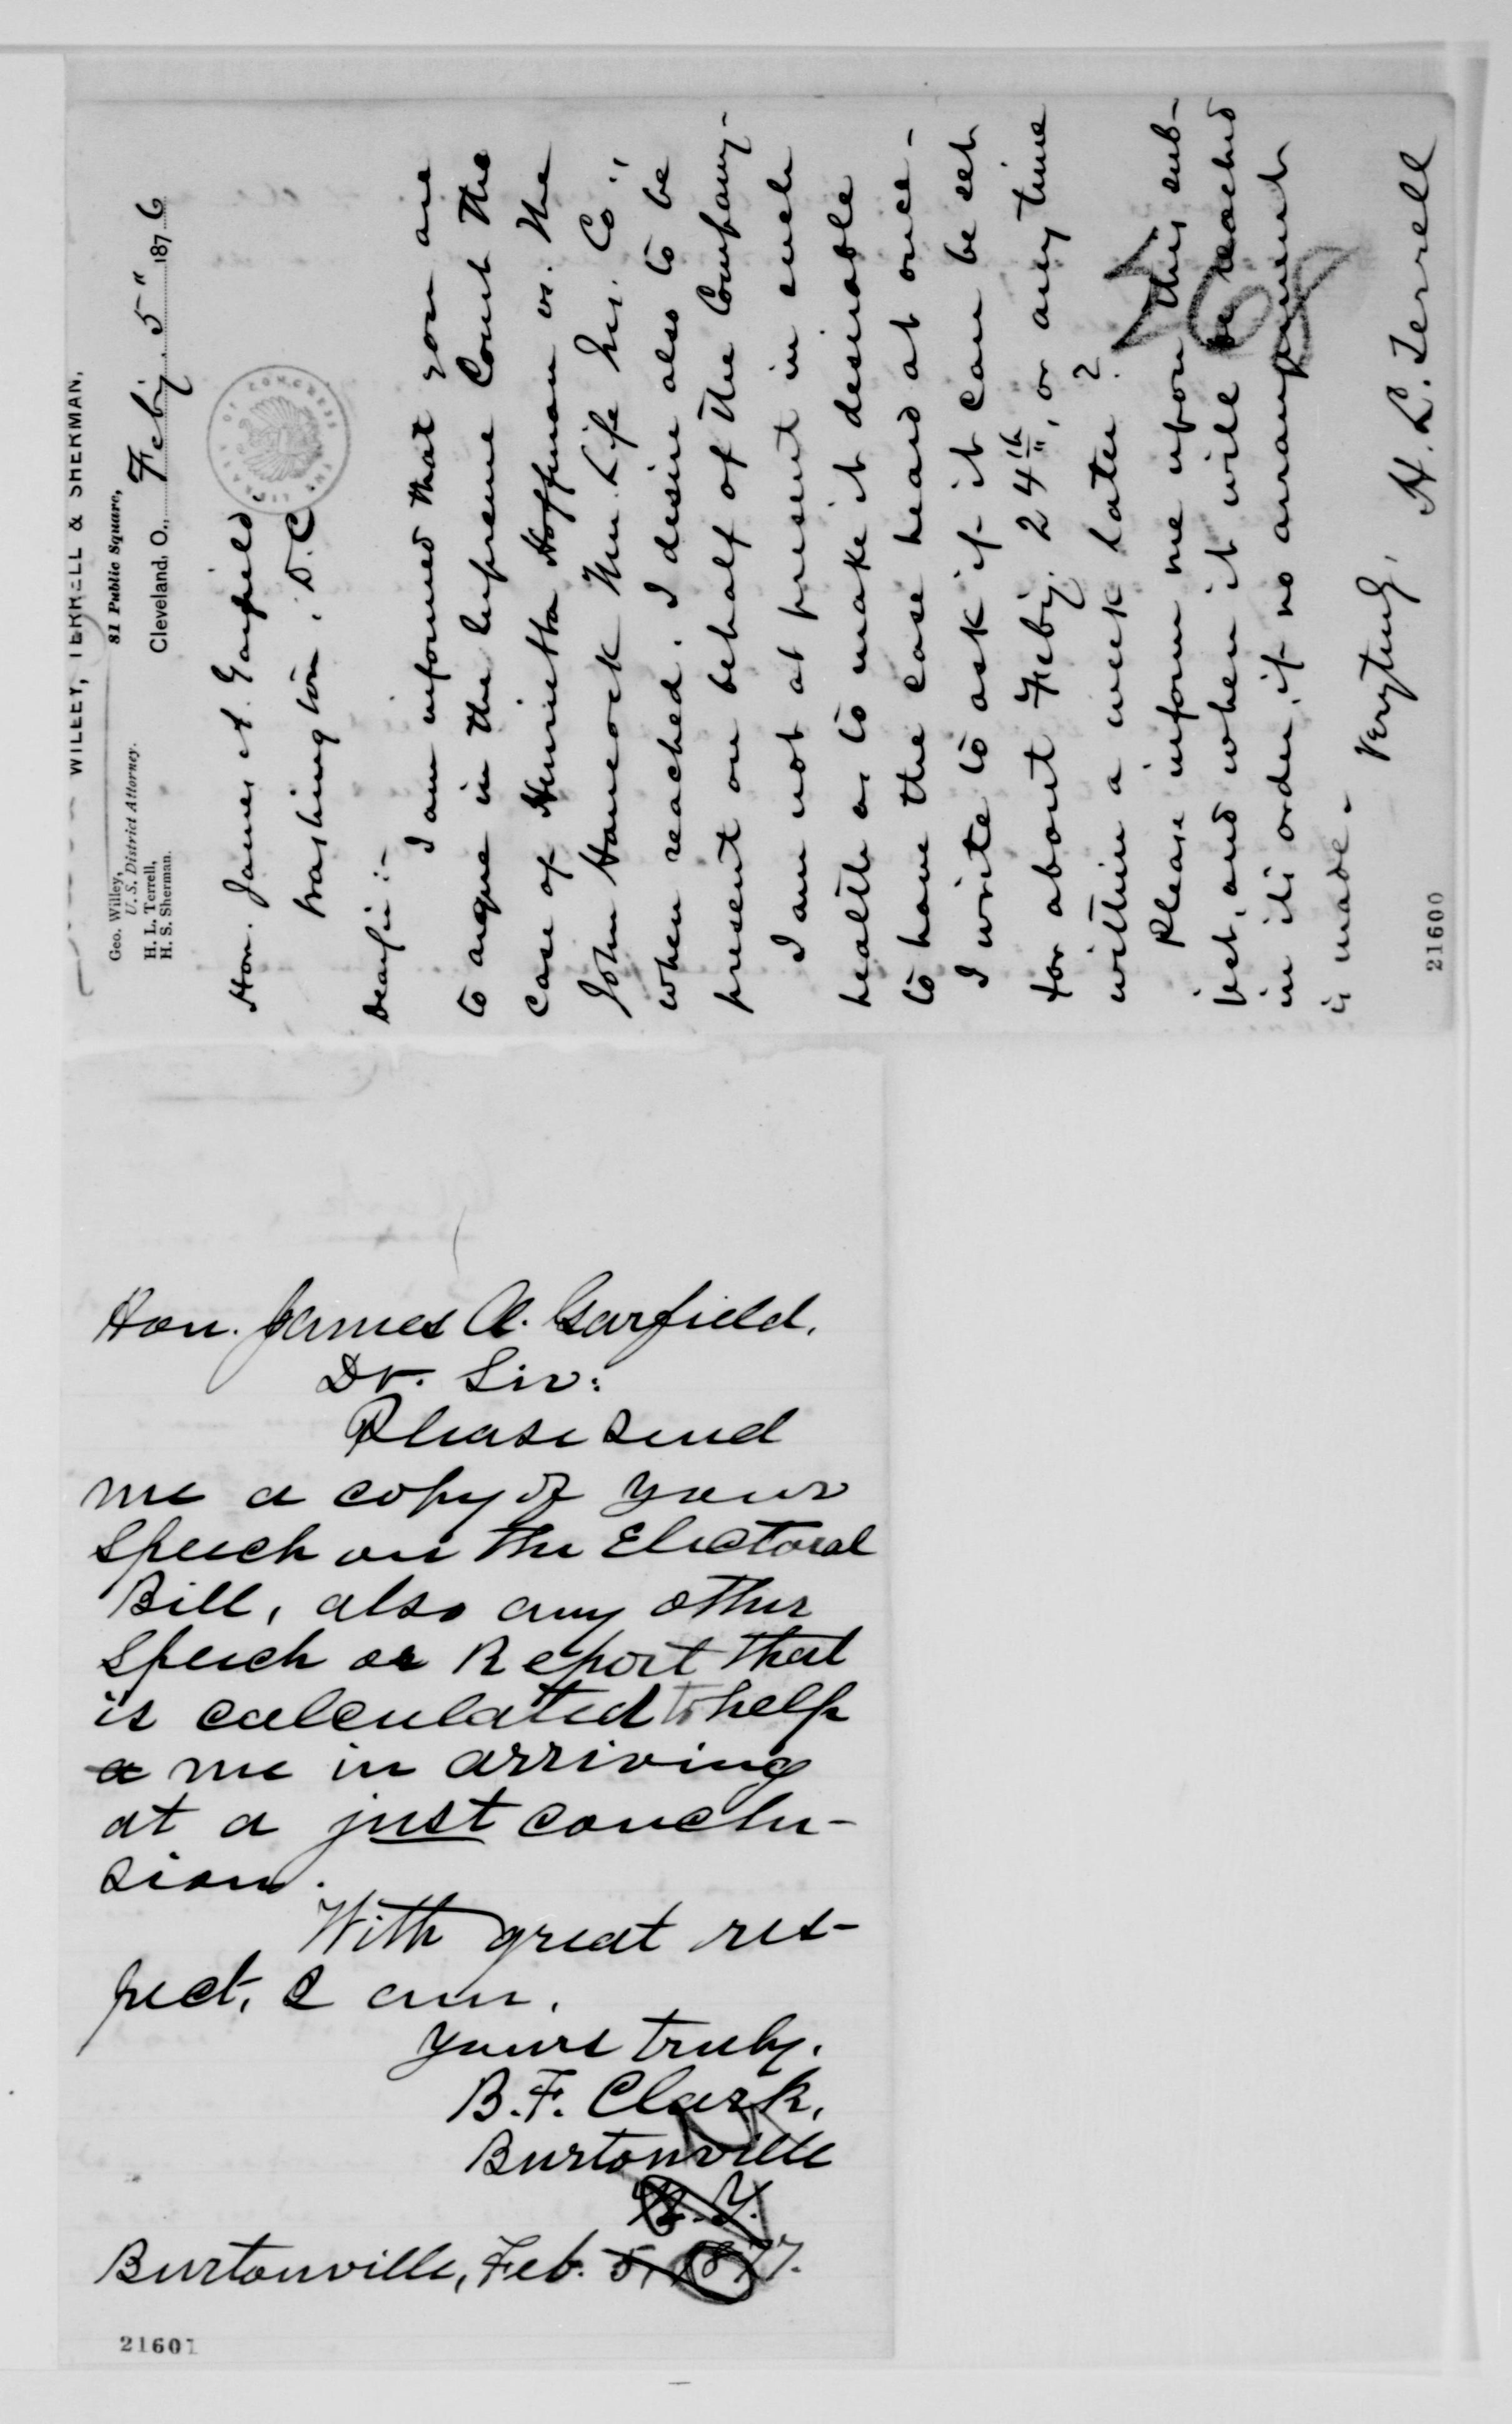 WILLEY, TERRELL & SHERMAN,
81 Public Square,
Geo. Willey,
U. S. District Attorney.
H. L. Terrell,
H. S. Sherman.
Cleveland, O., Feby. 5" 1876
Hon. James A. Garfield
Washington, D.C
Dear Sir:-
I am informed that you are
to argue in the Supreme Court the
case of Henrietta Hoffman vs. The
John Hancock Mu. Life Ins. Co",
when reached. I desire also to be
present on behalf of the Company-
I am not at present in such
health as to make it desirable
to have the case heard at once-
I write to ask if it can be set
for about Feby. 24th, or any time
within a week later?
Please inform me upon this sub-
ject, and when it will be reached
in its order, if no arrangement
is made-
Very truly,
H. L. Terrell
21600
Hon. James A. Garfield.
Dr. Sir:
Please send
me a copy of your
Speech on the Electoral
Bill, also any other
Speech or Report that
is calculated to help
a me in arriving
at a just conclu-
sion.
With great res-
pect, I am,
Yours truly,
B. F. Clark,
Burtonville
N.Y.
Burtonville, Feb. 5, 1877.
21601